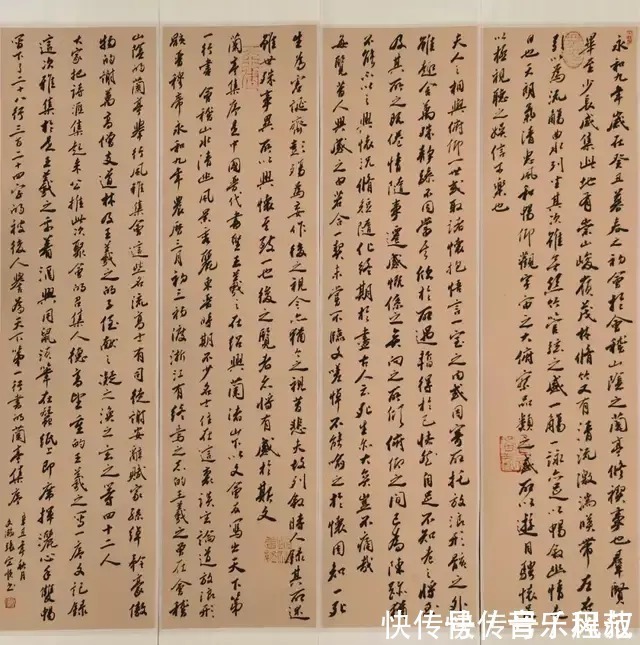 永和九年歲在癸丑暮春之初會於會稽山陰之蘭亭脩禊事也群賢
畢至少長咸集此地有崇山峻嶺茂林脩竹又有清流激湍暎帶左右
引以為流觴曲水列坐其次雖無絲竹管弦之盛一觴一詠亦足以暢敘幽情是
日也天朗氣清惠風和暢仰觀宇宙之大俯察品類之盛所以遊目騁懷足
以極視聽之娛信可樂也
夫人之相與俯仰一世或取諸懷抱悟言一室之內或因寄所託放浪形骸之外
雖趣舍萬殊靜躁不同當其欣於所遇暫得於己怏然自足不知老之將至
及其所之既倦情隨事遷感慨係之矣向之所欣俯仰之間已為陳跡猶
不能不以之興懷況脩短隨化終期於盡古人云死生亦大矣豈不痛哉
每覽昔人興感之由若合一契未嘗不臨文嗟悼不能喻之於懷固知一死
生為虛誕齊彭殤為妄作後之視今亦猶今之視昔悲夫故列敘時人錄其所述
雖世殊事異所以興懷其致一也後之覽者亦將有感於斯文
蘭亭集序是中國晉代書聖王羲之在紹興蘭渚山下以文會友寫出天下第
一行書會稽山水清幽風景秀麗東晉時期不少名士住在這裏談玄論道放浪形
骸晉穆帝永和九年農曆三月初三初渡浙江有終焉之志的王羲之曾在會稽
山陰的蘭亭舉行風雅集會這些名流高士有司徒謝安辭賦家孫綽矜豪傲
物的謝萬高僧支道林及王羲之的子侄獻之凝之渙之玄之等四十二人
大家把詩匯集起來公推此次聚會的召集人德高望重的王羲之寫一序文記錄
這次雅集於是王羲之乘着酒興用鼠鬚筆在蠶紙上即席揮灑心手雙暢
寫下了二十八行三百二十四字的被後人譽為天下第一行書的蘭亭集序
辛丑年秋月
快传号